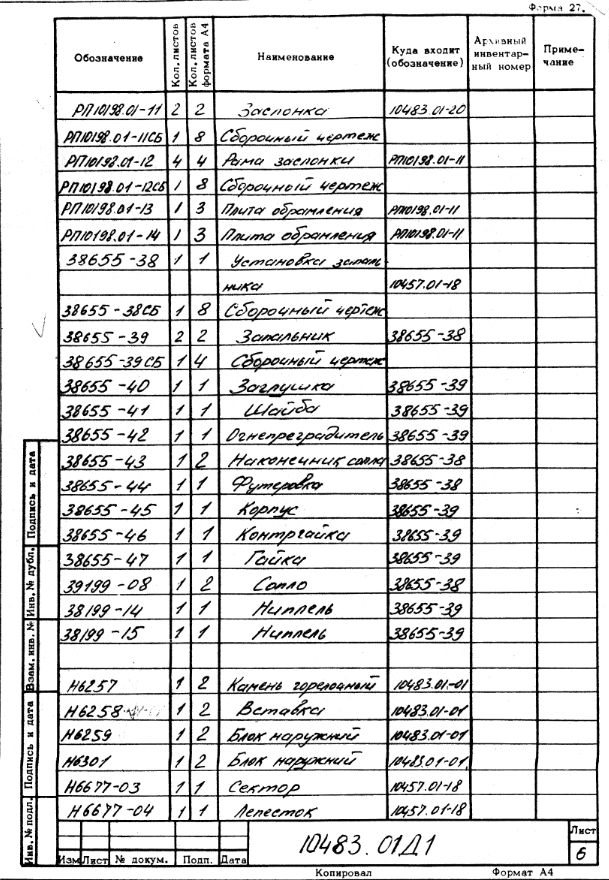 Форма 27.
Обозначение Кол. листов Кол. листов формата А4 Наименование Куда входит (обозначение) Архивный инвентар-ный номер Приме-чание
РП10198.01-11 2 2 Заслонка 10483.01-20
РП10198.01-11СБ 1 8 Сборочный чертеж
РП10198.01-12 4 4 Рама заслонки РП10198.01-11
РП10198.01-12СБ 1 8 Сборочный чертеж
РП10198.01-13 1 3 Плита обрамления РП10198.01-11
РП10198.01-14 1 3 Плита обрамления РП10198.01-11
38655-38 1 1 Установка запаль
ника 10457.01-18
38655-38СБ 1 8 Сборочный чертеж
38655-39 2 2 Запальник 38655-38
38655-39СБ 1 4 Сборочный чертеж
38655-40 1 1 Заглушка 38655-39
38655-41 1 1 Шайба 38655-39
38655-42 1 1 Огнепреградитель 38655-39
38655-43 1 2 Наконечник сопла 38655-38
38655-44 1 1 Футеровка 38655-38
38655-45 1 1 Корпус 38655-39
38655-46 1 1 Контргайка 38655-39
38655-47 1 1 Гайка 38655-39
39199-08 1 2 Сопло 38655-38
38199-14 1 1 Ниппель 38655-39
38199-15 1 1 Ниппель 38655-39
Н6257 1 2 Камень горелочный 10483.01-01
Н6258 1 2 Вставка 10483.01-01
Н6259 1 2 Блок наружний 10483.01-01
Н6301 1 2 Блок наружний 10483.01-01
Н6677-03 1 1 Сектор 10457.01-18
Н6677-04 1 1 Лепесток 10457.01-18
Инв. № подл. Подпись и дата Взам. инв. № Инв. № дубл. Подпись и дата
10483.01Д1
Лист
6
Изм Лист № докум. Подп. Дата
Копировал Формат А4